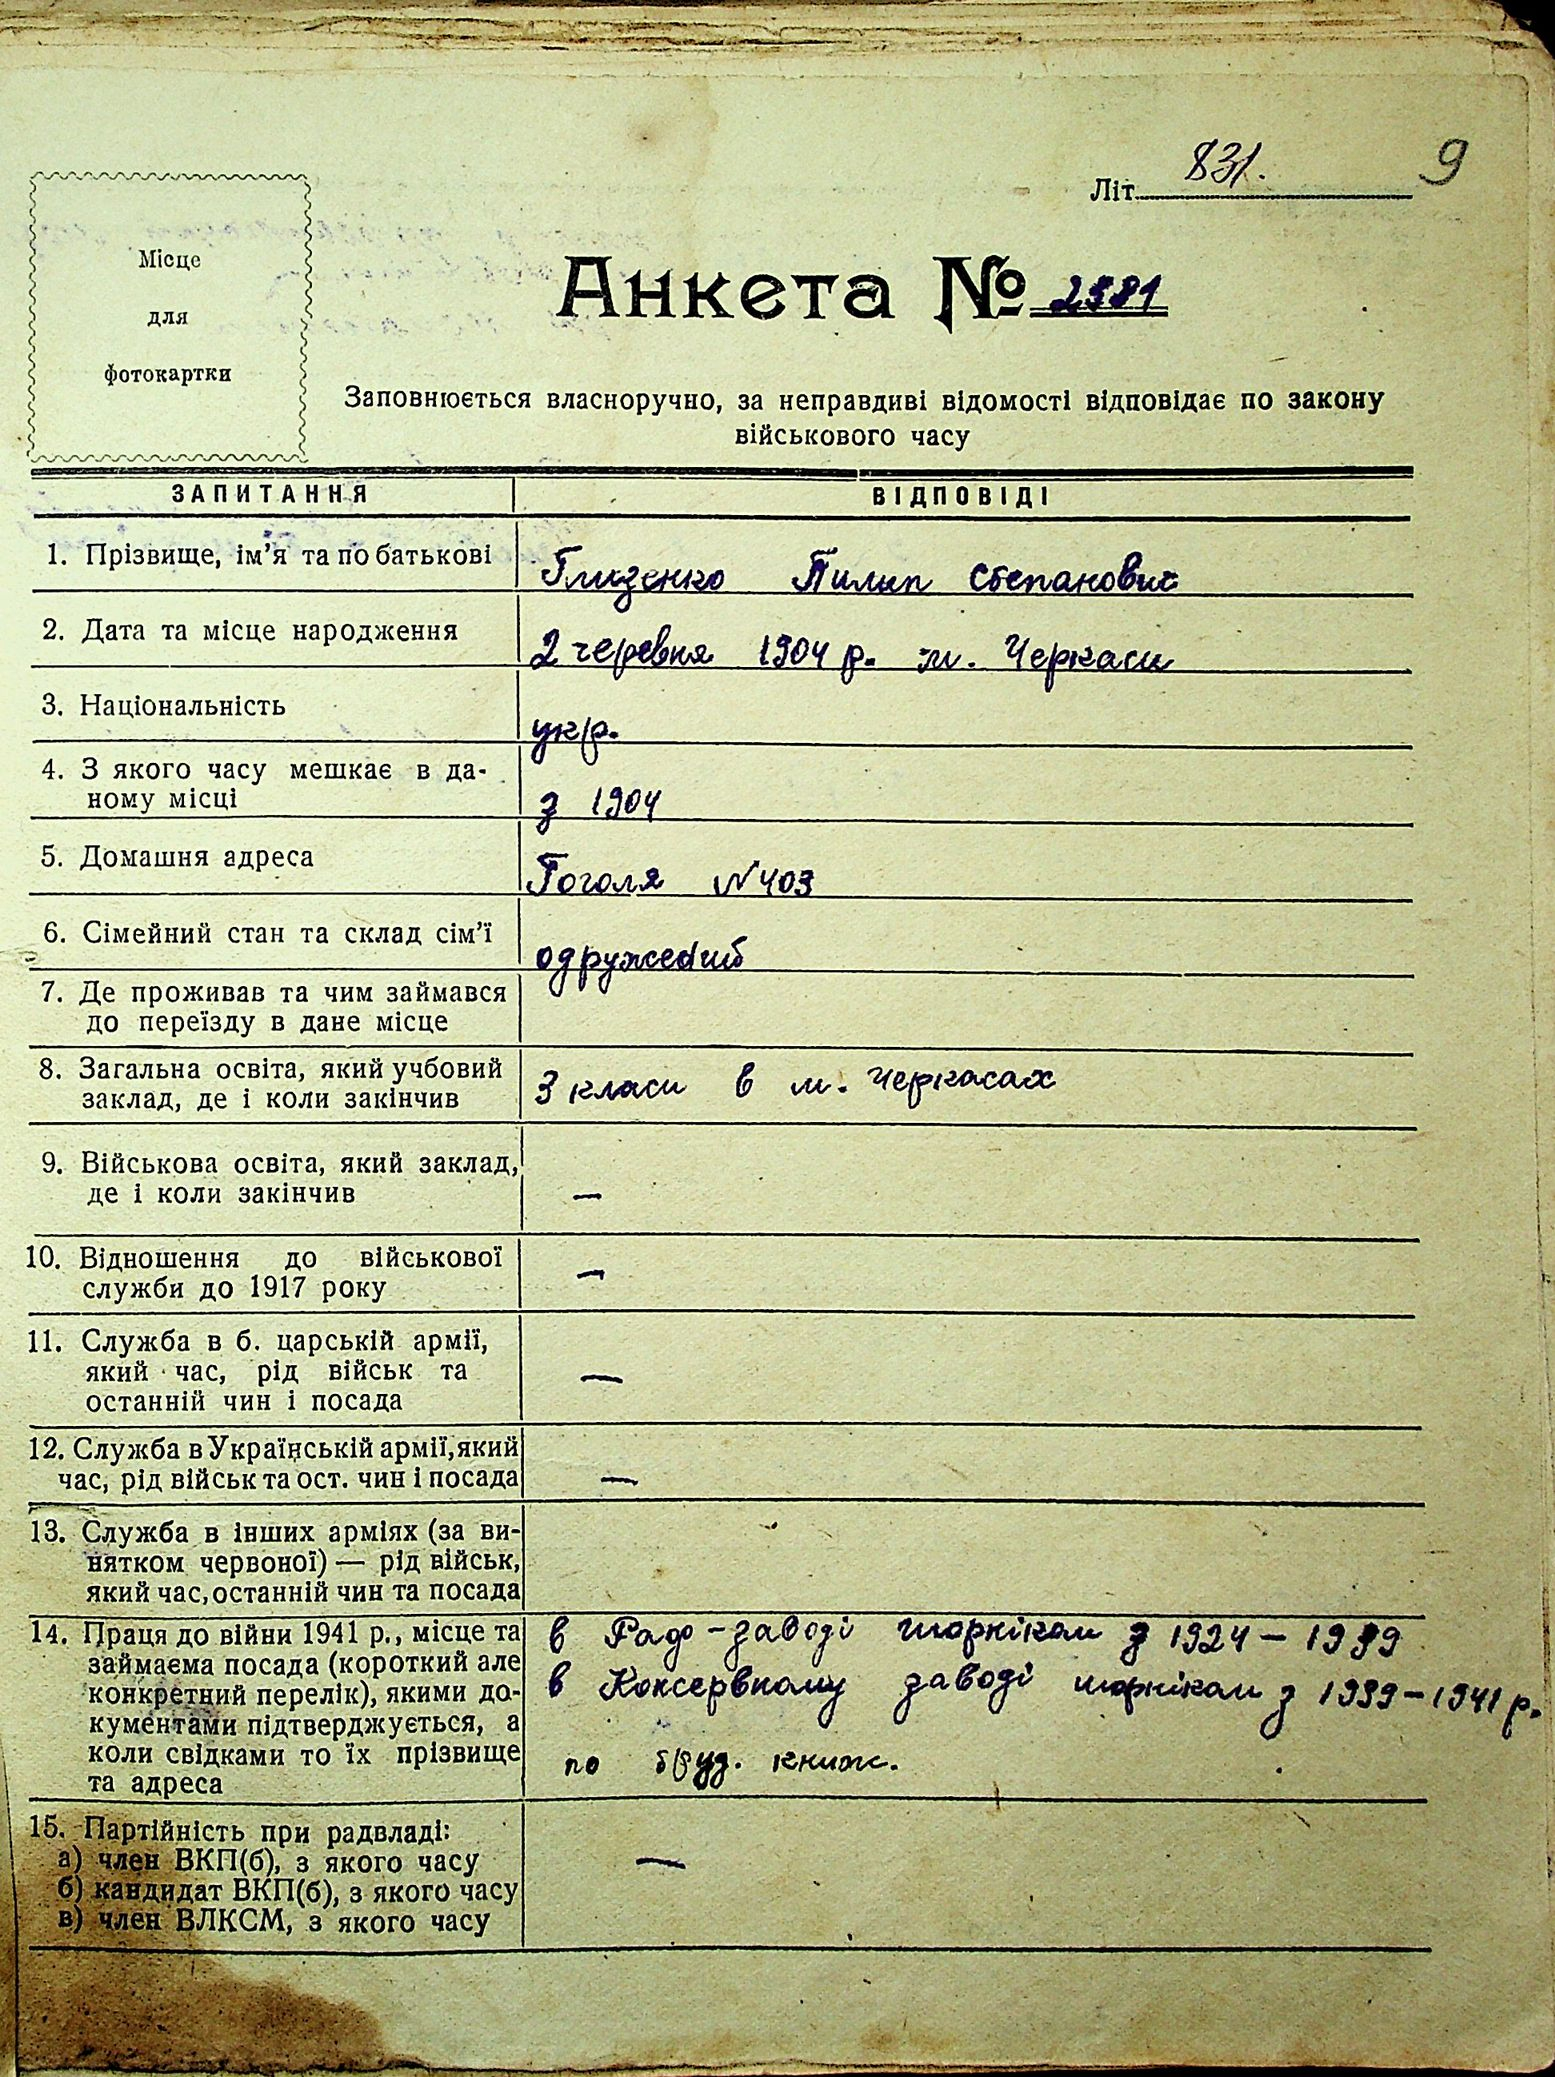 831.
9
Літ.
Місце
для
фотокартки
Анкета № 2981
Заповнюється власноручно, за неправдиві відомості відповідає по закону
військового часу
ЗАПИТАННЯ ВІДПОВІДІ
1. Прізвище, ім’я та по батькові
Глизенко Пилип Степанович
2. Дата та місце народження
2 червня 1904 р. м. Черкаси
3. Національність
укр.
4. З якого часу мешкає в да-
ному місці
з 1904
5. Домашня адреса
Гоголя N 403
6. Сімейний стан та склад сім’ї
7. Де проживав та чим займався
до переїзду в дане місце
8. Загальна освіта, який учбовий
заклад, де і коли закінчив
3 класи в м. Черкасах
9. Військова освіта, який заклад,
де і коли закінчив
—
10. Відношення до військової
служби до 1917 року
—
11. Служба в б. царській армії,
який час, рід військ та
останній чин і посада
—
12. Служба в Українській армії, який
час, рід військ та ост. чин і посада
—
13. Служба в інших арміях (за ви-
нятком червоної) — рід військ,
який час, останній чин та посада
14. Праця до війни 1941 р., місце та
займаєма посада (короткий але
конкретний перелік), якими до-
кументами підтверджується, а
коли свідками то їх прізвище
та адреса
в заводі шорніком з 1924 – 1939
в Консервному заводі шорніком з 1939 – 1941 р.
по труд. книж.
15. Партійність при радвладі:
а) член ВКП(б), з якого часу
б) кандидат ВКП(б), з якого часу
в) член ВЛКСМ, з якого часу
—